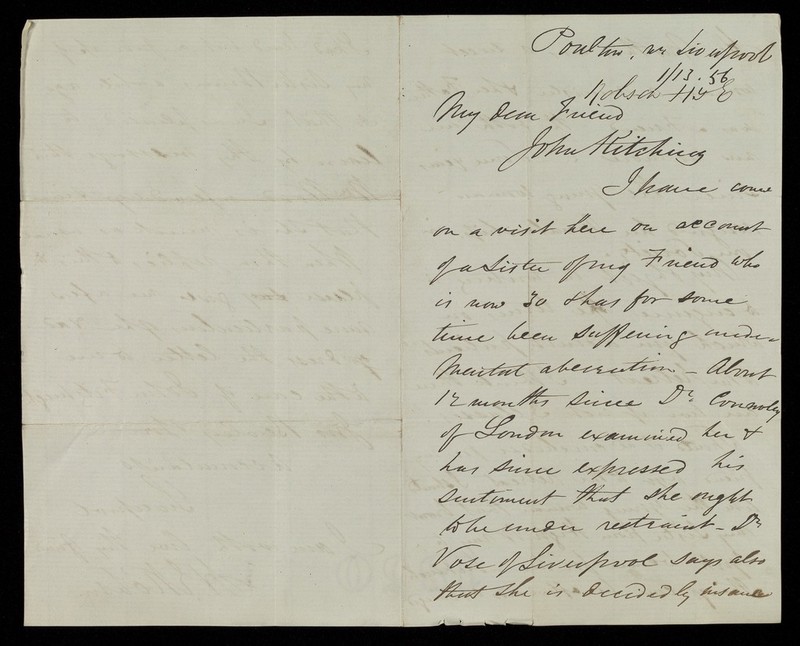 Poulton, nr Liverpool
1/13.56
My dear Friend
John Kitching
I have come
on a visit here on account
of a Sister of my Friend who
is now 30 & has for some
time been suffering under
Mental aberration - About
12 months since Dr. Connolly
of London examined her &
has since expressed his
sentiment that she ought
to be under restraint - Dr
Vose of Liverpool says also
that she is decidedly insane